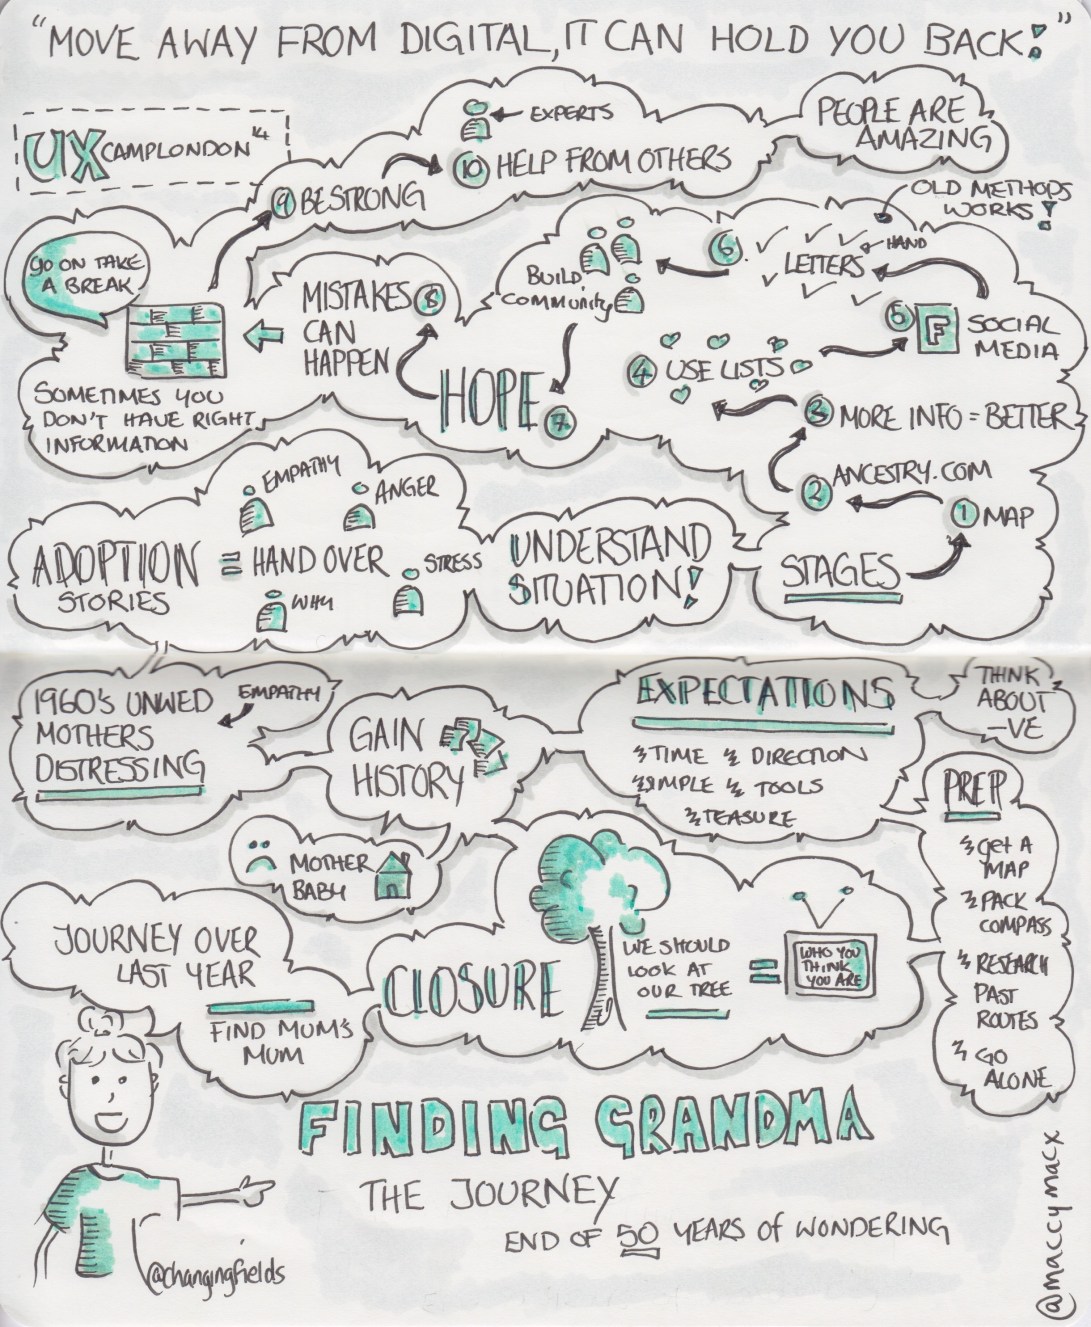 "MOVE AWAY FROM DIGITAL, IT CAN HOLD YOU BACK!"
UX CAMPLONDON '14
EXPERTS
10 HELP FROM OTHERS
9 BE STRONG
PEOPLE ARE
AMAZING
OLD METHODS
WORKS!
GO ON TAKE
A BREAK
SOMETIMES YOU
DON'T HAVE RIGHT
INFORMATION
MISTAKES 8
CAN
HAPPEN
BUILD
COMMUNITY
6
HAND
LETTERS
5 F SOCIAL
MEDIA
4 USE LISTS
HOPE 7
3 MORE INFO = BETTER
2 ANCESTRY.COM
1 MAP
STAGES
EMPATHY
ANGER
ADOPTION = HAND OVER
STORIES
STRESS
WHY
UNDERSTAND
SITUATION!
1960's UNWED
MOTHERS
DISTRESSING
EMPATHY
GAIN
HISTORY
EXPECTATIONS
TIME DIRECTION
SIMPLE TOOLS
TEASURE
THINK
ABOUT
-VE
PREP
GET A
MAP
PACK
COMPASS
RESEARCH
PAST
ROUTES
GO
ALONE
MOTHER
BABY
JOURNEY OVER
LAST YEAR
FIND MUM'S
MUM
CLOSURE
WE SHOULD
LOOK AT
OUR TREE
=
WHO YOU
THINK
YOU ARE
FINDING GRANDMA
THE JOURNEY
END OF 50 YEARS OF WONDERING
@changingfields
@maccymacx